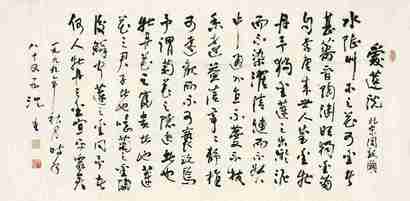 愛蓮說 北宋周敦頤
水陸艸木之花可愛者
甚蕃晉陶淵明獨愛菊
自李唐來世人愛牡
丹予獨愛蓮之出淤泥
而不染濯清漣而不妖
中通外直不蔓不枝
香遠益清亭亭靜植
可遠觀而不可褻玩焉
予謂菊花之隱逸者也
牡丹花之富貴者也蓮
花之君子者也噫菊之愛陶
後鮮有聞蓮之愛同予者
何人牡丹之愛宜乎眾矣
一九九一年秋月時年
八十 沈